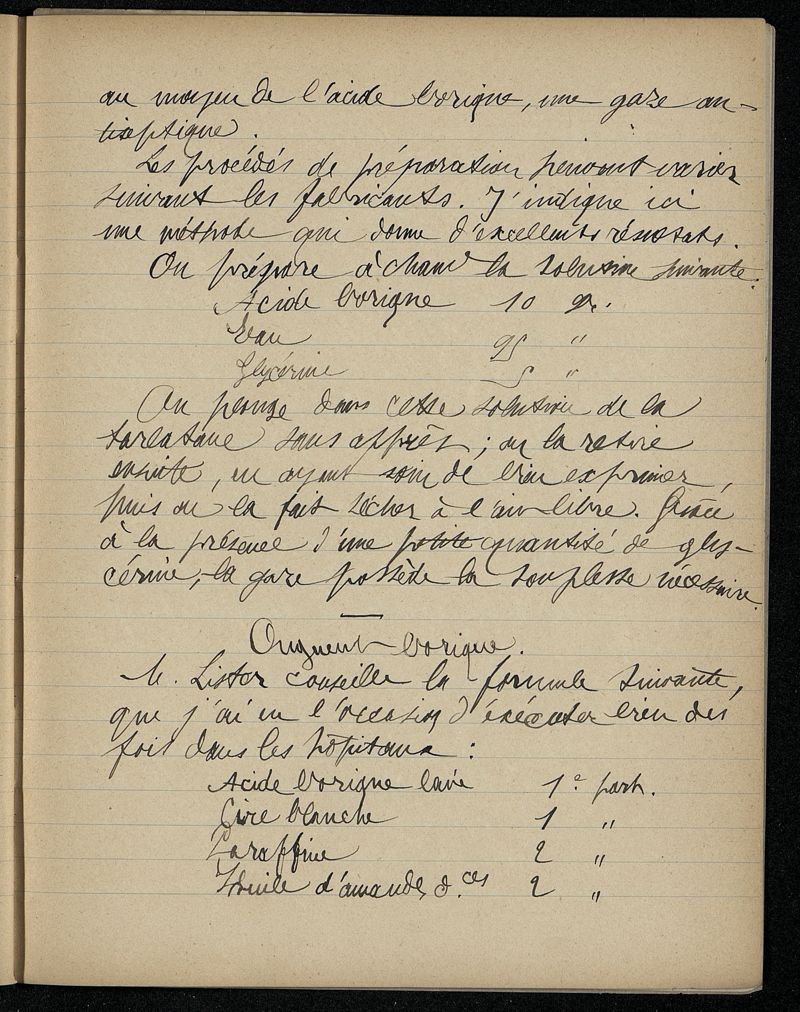 au moyen de l'acide borique, une gaze an-
tiseptique.
Les procédés de préparation peuvent varier
suivant les fabricants. J'indique ici
une méthode qui donne d'excellents résultats.
On prépare à chaud la solution suivante.
Acide borique 10 gr.
Eau 95 "
Glycérine 5 "
On plonge dans cette solution de la
tarlatane sans apprêt ; on la retire
ensuite, en ayant soin de bien exprimer,
puis on la fait sécher à l'air libre. Grâce
à la présence d'une petite quantité de gly-
cérine, la gaze possède la souplesse nécessaire.
Onguent borique.
M. Lister conseille la formule suivante,
que j'ai eu l'occasion d'exécuter bien des
fois dans les hôpitaux :
Acide borique lavé 1e part.
Cire blanche 1 "
Paraffine 2 "
Huile d'amandes d.ces 2 "